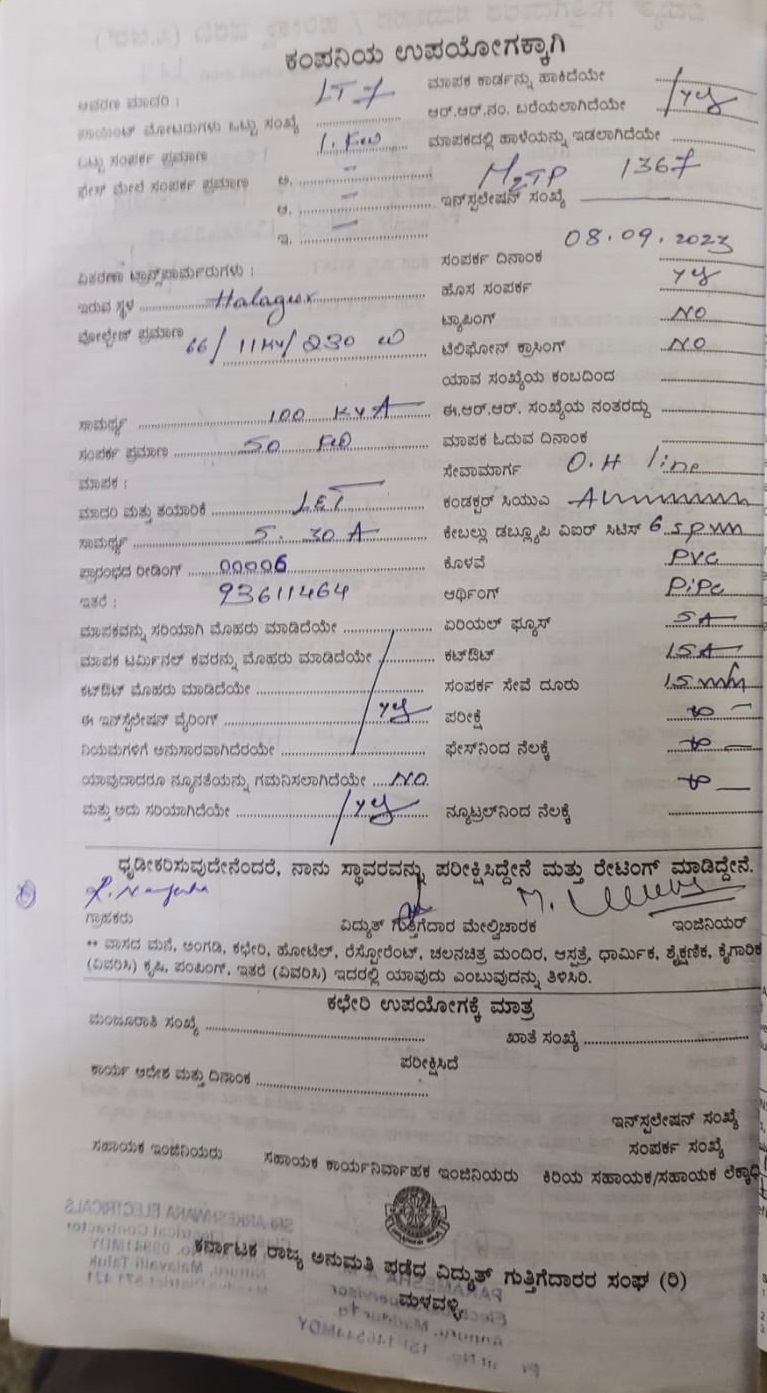 ಕಂಪನಿಯ ಉಪಯೋಗಕ್ಕಾಗಿ
ಆವರಣ ಮಾದರಿ : LT 7 ಮಾಪಕ ಕಾರ್ಡನ್ನು ಹಾಕಿದೆಯೇ
ಪಾಯಿಂಟ್ ಮೋಟರುಗಳು ಒಟ್ಟು ಸಂಖ್ಯೆ ಆರ್.ಆರ್.ನಂ. ಬರೆಯಲಾಗಿದೆಯೇ yes
ಒಟ್ಟು ಸಂಪರ್ಕ ಪ್ರಮಾಣ 1. KW ಮಾಪಕದಲ್ಲಿ ಹಾಳೆಯನ್ನು ಇಡಲಾಗಿದೆಯೇ
ಫೇಸ್ ಮೇಲೆ ಸಂಪರ್ಕ ಪ್ರಮಾಣ ಅ. – ಇನ್‌ಸ್ಟಲೇಷನ್ ಸಂಖ್ಯೆ 1367
ಆ. –
ಇ. –
ಸಂಪರ್ಕ ದಿನಾಂಕ 08.09.2023
ವಿತರಣಾ ಟ್ರಾನ್ಸ್‌ಫಾರ್ಮರುಗಳು :
ಇರುವ ಸ್ಥಳ Halagur ಹೊಸ ಸಂಪರ್ಕ yes
ವೋಲ್ಟೇಜ್ ಪ್ರಮಾಣ 66/11KV/230 ಟ್ಯಾಪಿಂಗ್ NO
ಟೆಲಿಫೋನ್ ಕ್ರಾಸಿಂಗ್ NO
ಯಾವ ಸಂಖ್ಯೆಯ ಕಂಬದಿಂದ
ಸಾಮರ್ಥ್ಯ 100 KVA ಈ.ಆರ್.ಆರ್. ಸಂಖ್ಯೆಯ ನಂತರದ್ದು
ಸಂಪರ್ಕ ಪ್ರಮಾಣ 50 ಮಾಪಕ ಓದುವ ದಿನಾಂಕ
ಮಾಪಕ : ಸೇವಾಮಾರ್ಗ O.H line
ಮಾದರಿ ಮತ್ತು ತಯಾರಿಕೆ ಕಂಡಕ್ಟರ್ ಸಿಯುಎ
ಸಾಮರ್ಥ್ಯ 5. 30 A ಕೇಬಲ್ಲು ಡಬ್ಲ್ಯೂಪಿ ವಿಐರ್ ಸಿಟಿಸ್ 6
ಪ್ರಾರಂಭದ ರೀಡಿಂಗ್ 00006 ಕೊಳವೆ PVC
ಇತರೆ : 93611464 ಆರ್ಥಿಂಗ್ PiPe
ಮಾಪಕವನ್ನು ಸರಿಯಾಗಿ ಮೊಹರು ಮಾಡಿದೆಯೇ ಏರಿಯಲ್ ಫ್ಯೂಸ್ 5A
ಮಾಪಕ ಟರ್ಮಿನಲ್ ಕವರನ್ನು ಮೊಹರು ಮಾಡಿದೆಯೇ ಕಟ್‌ಔಟ್ 15A
ಕಟ್‌ಔಟ್ ಮೊಹರು ಮಾಡಿದೆಯೇ ಸಂಪರ್ಕ ಸೇವೆ ದೂರು 15
ಈ ಇನ್‌ಸ್ಟಲೇಷನ್ ವೈರಿಂಗ್ yes ಪರೀಕ್ಷೆ
ನಿಯಮಗಳಿಗೆ ಅನುಸಾರವಾಗಿದೆರಯೇ ಫೇಸ್‌ನಿಂದ ನೆಲಕ್ಕೆ
ಯಾವುದಾದರೂ ನ್ಯೂನತೆಯನ್ನು ಗಮನಿಸಲಾಗಿದೆಯೇ NO.
ಮತ್ತು ಅದು ಸರಿಯಾಗಿದೆಯೇ yes ನ್ಯೂಟ್ರಲ್‌ನಿಂದ ನೆಲಕ್ಕೆ
ಧೃಡೀಕರಿಸುವುದೇನೆಂದರೆ, ನಾನು ಸ್ಥಾವರವನ್ನು ಪರೀಕ್ಷಿಸಿದ್ದೇನೆ ಮತ್ತು ರೇಟಿಂಗ್ ಮಾಡಿದ್ದೇನೆ.
ಗ್ರಾಹಕರು ವಿದ್ಯುತ್ ಗುತ್ತಿಗೆದಾರ ಮೇಲ್ವಿಚಾರಕ ಇಂಜಿನಿಯರ್
** ವಾಸದ ಮನೆ, ಅಂಗಡಿ, ಕಛೇರಿ, ಹೋಟೆಲ್, ರೆಸ್ಟೋರೆಂಟ್, ಚಲನಚಿತ್ರ ಮಂದಿರ, ಆಸ್ಪತ್ರೆ, ಧಾರ್ಮಿಕ, ಶೈಕ್ಷಣಿಕ, ಕೈಗಾರಿಕ
(ವಿವರಿಸಿ) ಕೃಷಿ, ಪಂಪಿಂಗ್, ಇತರೆ (ವಿವರಿಸಿ) ಇದರಲ್ಲಿ ಯಾವುದು ಎಂಬುವುದನ್ನು ತಿಳಿಸಿರಿ.
ಕಛೇರಿ ಉಪಯೋಗಕ್ಕೆ ಮಾತ್ರ
ಮಂಜೂರಾತಿ ಸಂಖ್ಯೆ ಖಾತೆ ಸಂಖ್ಯೆ
ಪರೀಕ್ಷಿಸಿದೆ
ಕಾರ್ಯ ಆದೇಶ ಮತ್ತು ದಿನಾಂಕ
ಇನ್‌ಸ್ಟಲೇಷನ್ ಸಂಖ್ಯೆ
ಸಂಪರ್ಕ ಸಂಖ್ಯೆ
ಸಹಾಯಕ ಇಂಜಿನಿಯರು ಸಹಾಯಕ ಕಾರ್ಯನಿರ್ವಾಹಕ ಇಂಜಿನಿಯರು ಕಿರಿಯ ಸಹಾಯಕ/ಸಹಾಯಕ ಲೆಕ್ಕಾಧಿ
ಕರ್ನಾಟಕ ರಾಜ್ಯ ಅನುಮತಿ ಪಡೆದ ವಿದ್ಯುತ್ ಗುತ್ತಿಗೆದಾರರ ಸಂಘ (ರಿ)
ಮಳವಳ್ಳಿ